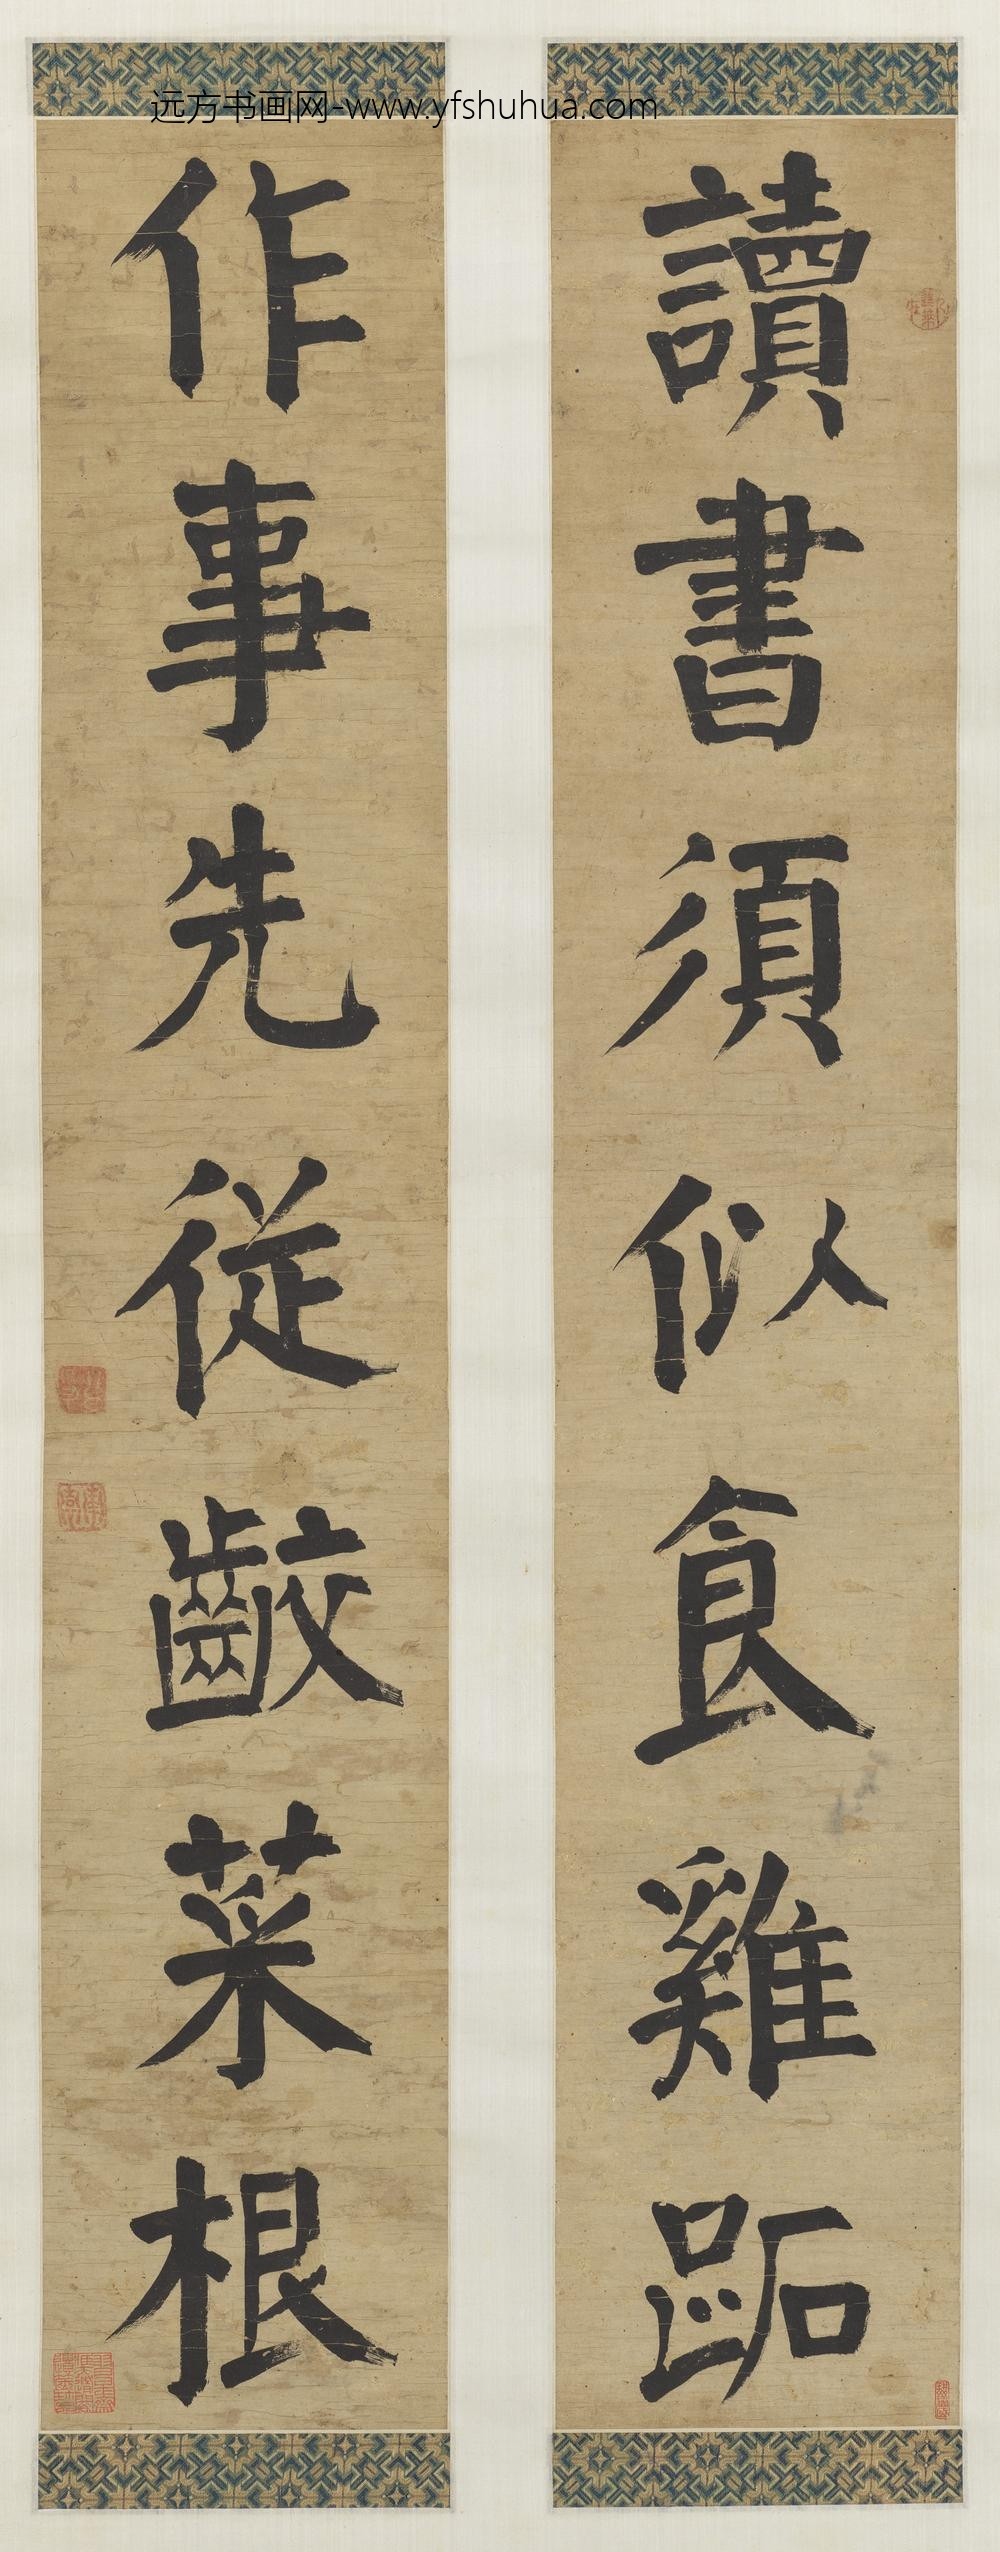 远方书画网-www.yfshuhua.com
讀書須似食雞跖
作事先從齩菜根